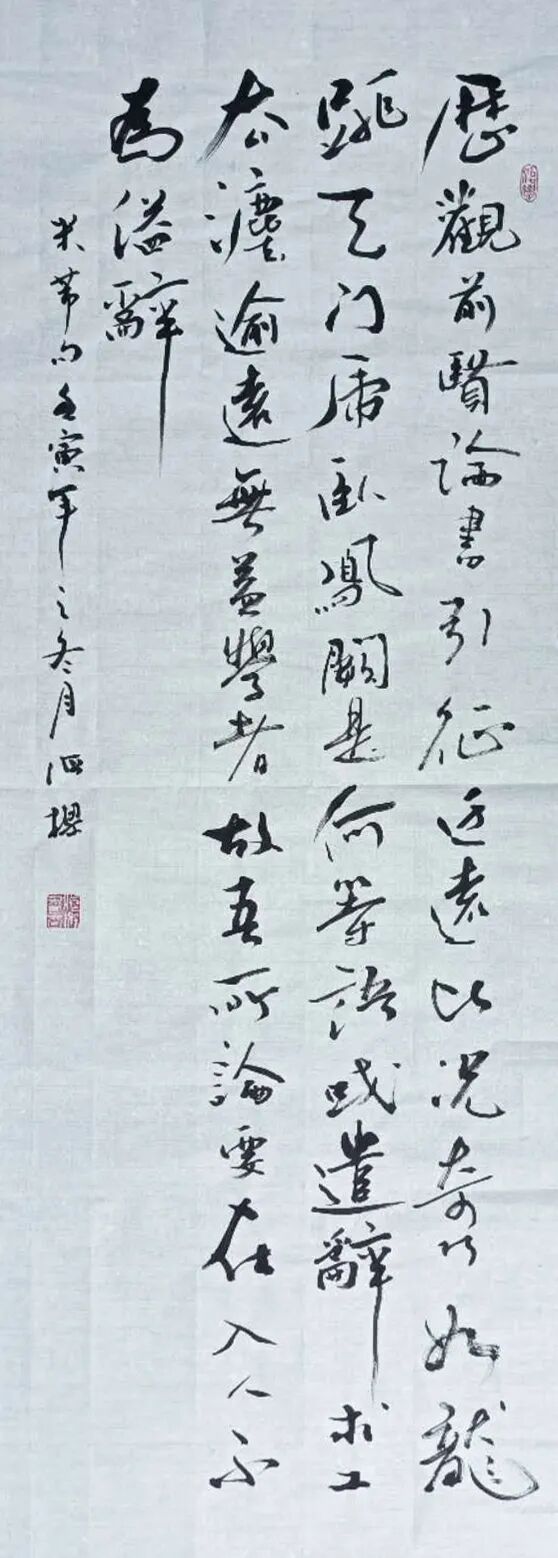 歷觀前賢論書引征迂遠比况奇巧如龍
跳天门虎卧鳳闕是何等語或遣辭求工
去法逾遠無益學者故吾所論要在入人不
為溢辭
米芾句壬寅年之冬月